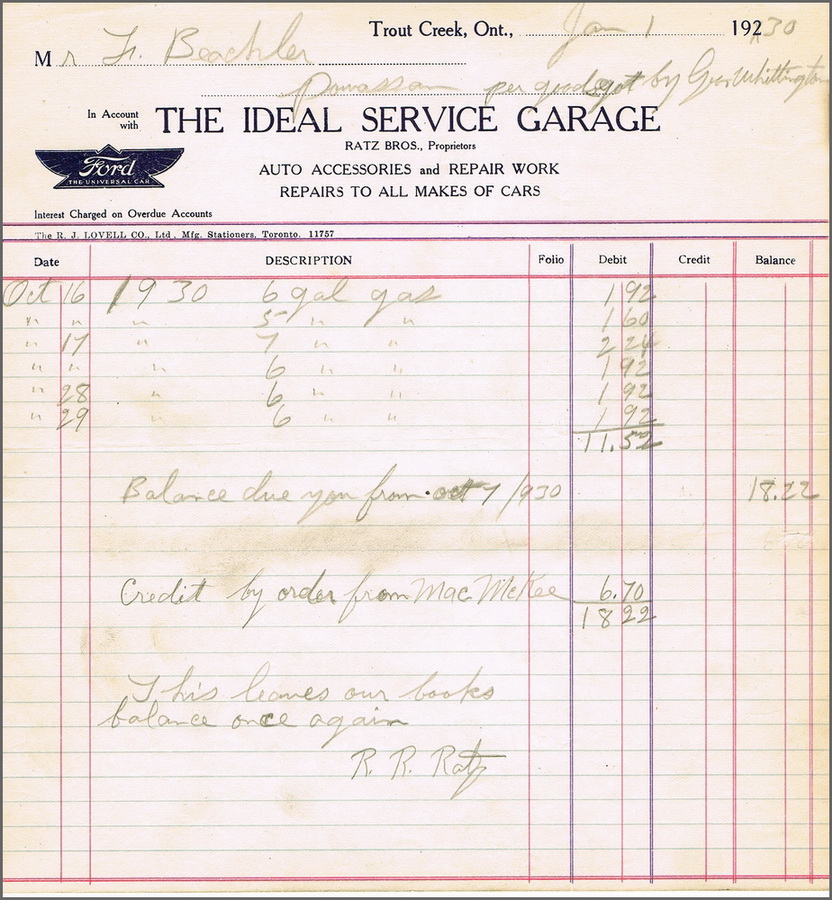 Trout Creek, Ont., Jan 1 192 30
Mr Fr. Beachler
Powassan per goods got by Gus Whittington
In Account with
THE IDEAL SERVICE GARAGE
RATZ BROS., Proprietors
Ford
THE UNIVERSAL CAR
AUTO ACCESSORIES and REPAIR WORK
REPAIRS TO ALL MAKES OF CARS
Interest Charged on Overdue Accounts
The R. J. LOVELL CO., Ltd., Mfg. Stationers, Toronto. 11757
Date DESCRIPTION Folio Debit Credit Balance
Oct 16 1930 6 gal gas 1 92
" " " 5 " " 1 60
" 17 " 7 " " 2 24
" " " 6 " " 1 92
" 28 " 6 " " 1 92
" 29 " 6 " " 1 92
11.52
Balance due you from Oct 7 1930 18.22
Credit by order from Mac McKee 6.70
18 22
This leaves our books
balance once again
R. R. Ratz